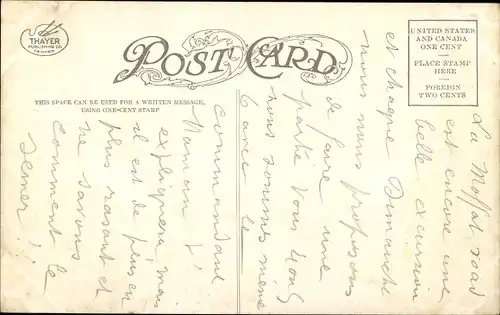 THAYER
PUBLISHING CO.
DENVER
POST CARD
THIS SPACE CAN BE USED FOR A WRITTEN MESSAGE,
USING ONE-CENT STAMP
UNITED STATES
AND CANADA
ONE CENT
PLACE STAMP
HERE
FOREIGN
TWO CENTS
La Moffat road
est encore une
belle excursion
et chaque Dimanche
nous nous proposons
de faire une
partie vous
nous sommes même
avec le
commandant
Maman t'
expliquera mais
il est de plus en
plus rasant et
ne savons
comment le
semer!!